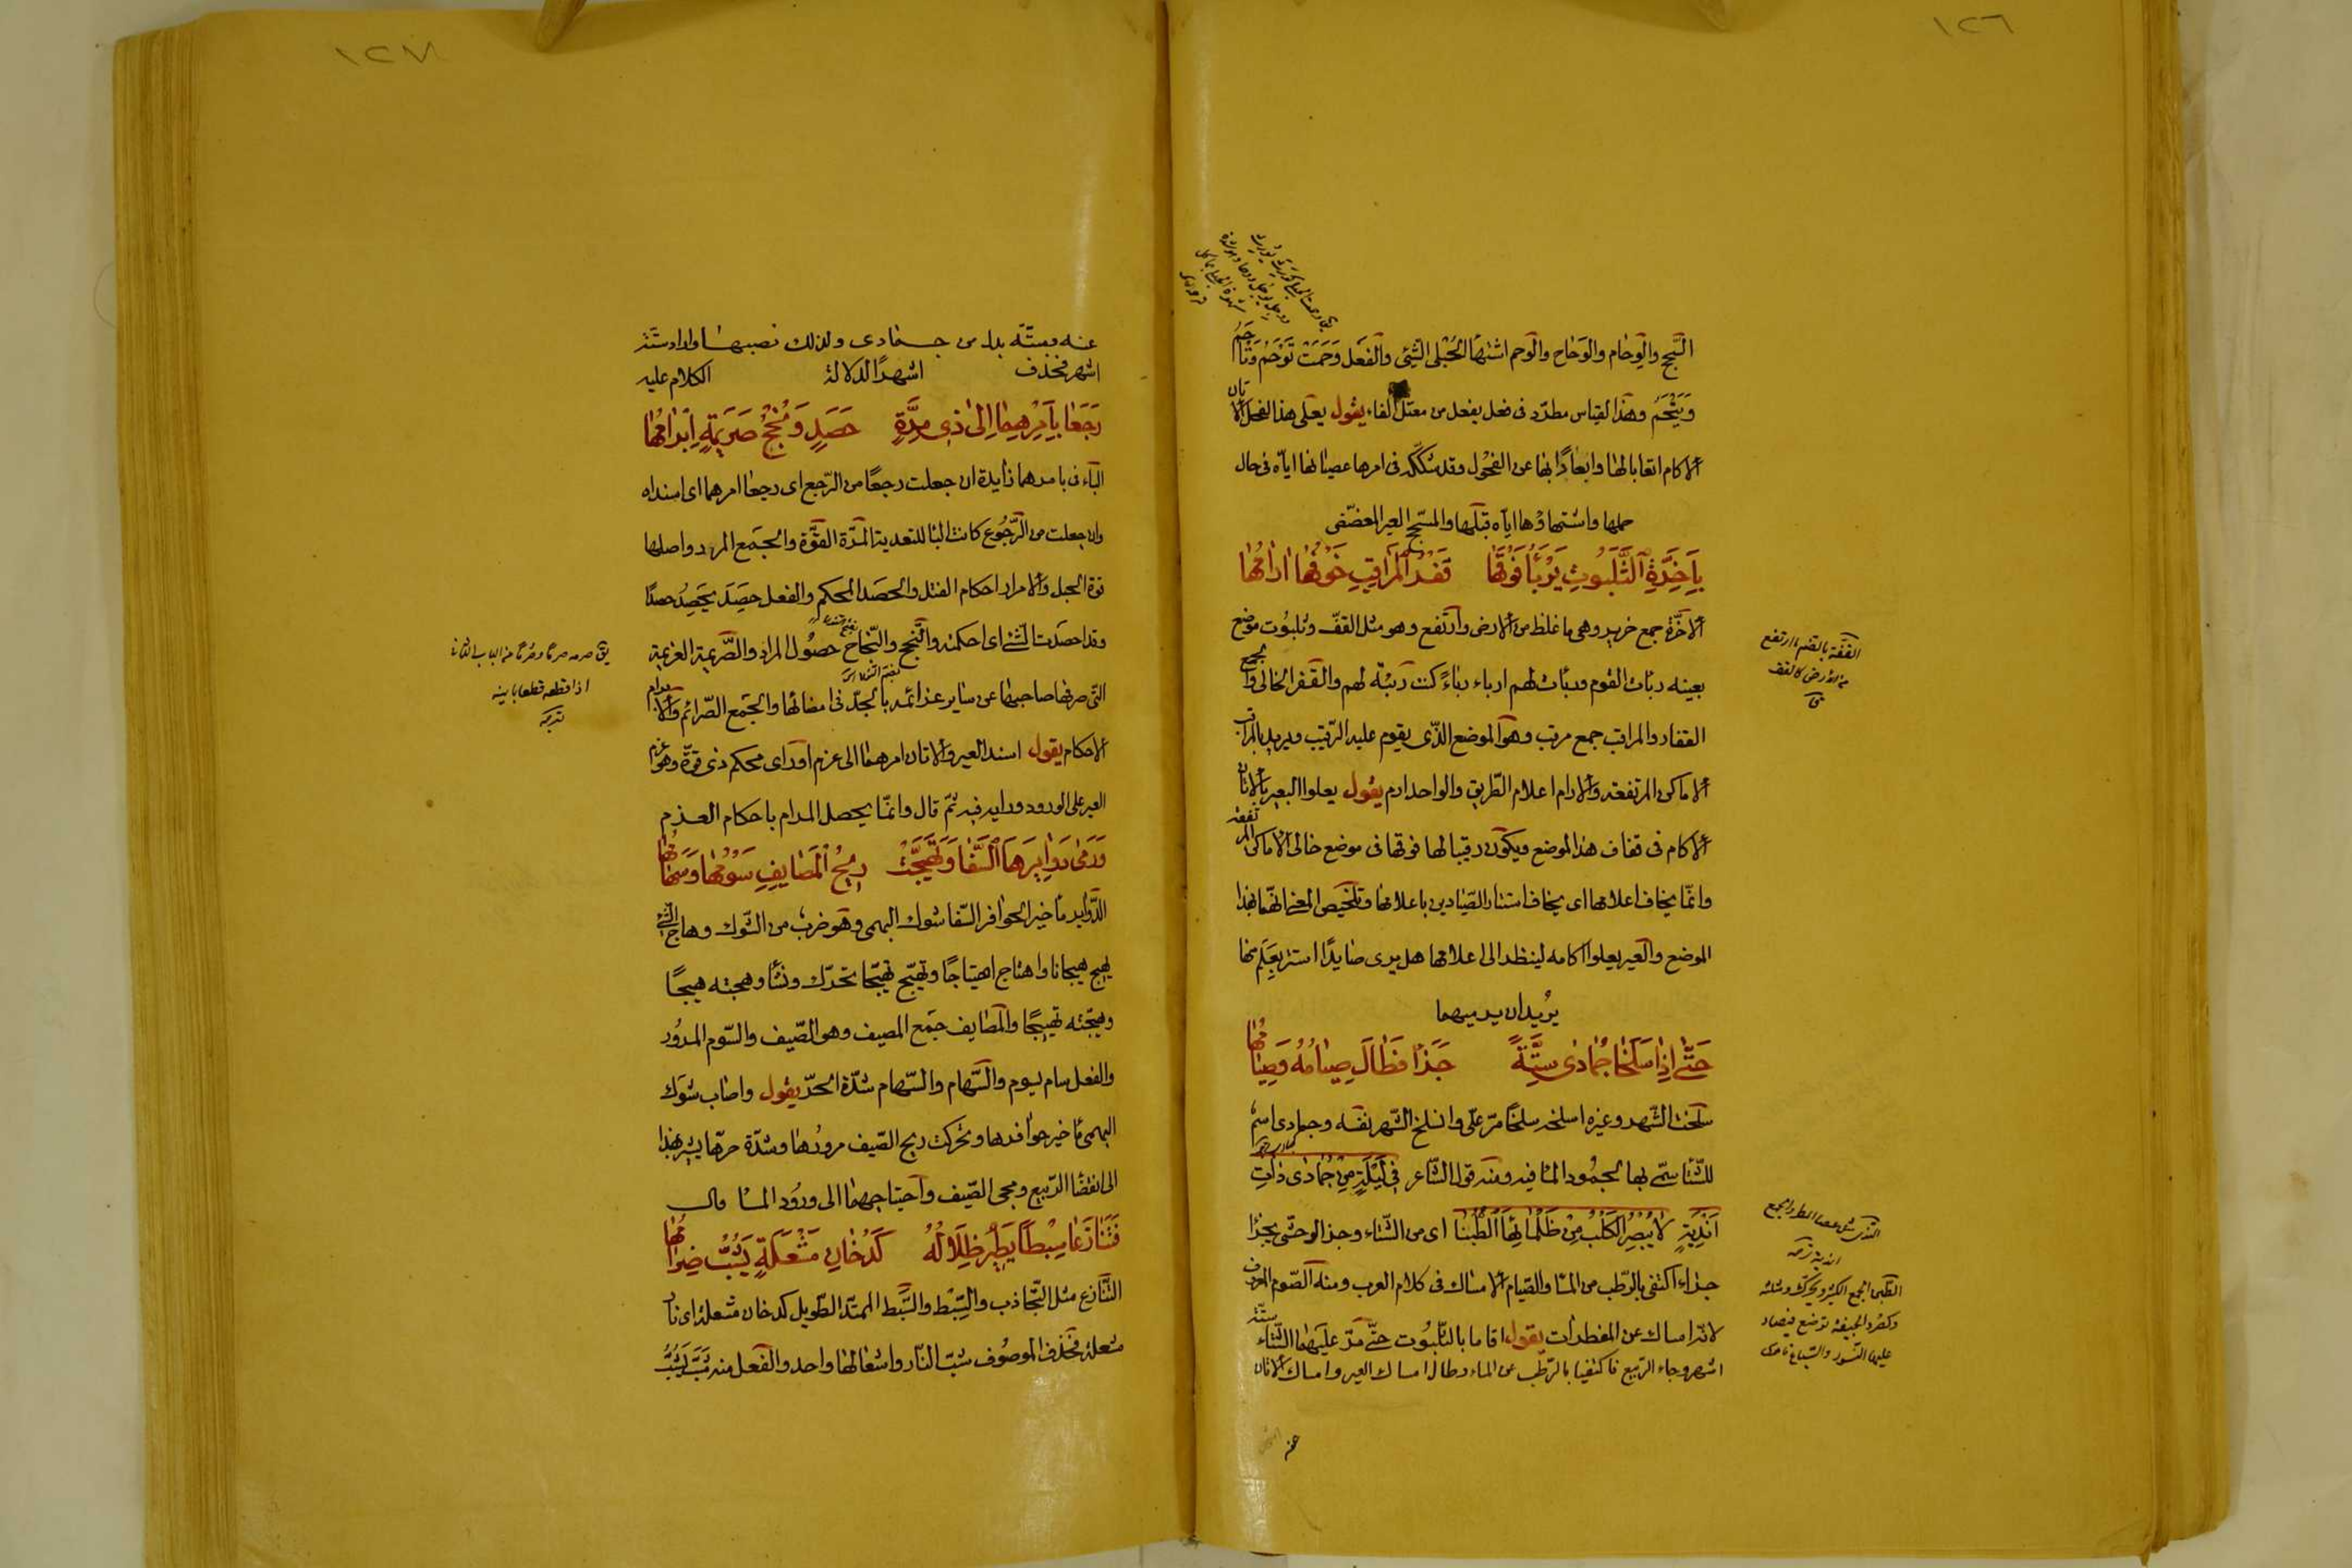 ١٢٦
السَّحج والوِحام والوَحاح والوَحم اشتهآ الحُبْلى الشّئ والفعل وَحَمَت تَوْحَمُ وَتَاحَمُ
وَيَيْحَمُ وهذا القياس مطّرد فى فعل يفعل من معتلّ الفاء يقول يعلى هذا الفحل الاتان
الاكام اتعابا لها وابعادًا بها عن الفحول وقد شكّكه فى امرها عصيانها اياه فى حال
حملها واشتهاؤها اياه قبلها والمسحّج العير المعضّض
بِاَحِزَّةِ الثَّلَبُوتِ يَرْبَأُ فَوْقَهَا قَفْرُ الْمَرَاقِبِ خَوْفُهَا اٰرَامُهَا
الاحزّة جمع حزيز وهى ما غلظ من الارض وارتفع وهو مثل القفّ وثلبُوت موضع
بعينه ربأت القوم وربأت لهم اربأ ربأً كنت ربيئة لهم والقفر الخالى والجمع
القفار والمراقب جمع مرقب وهو الموضع الذّى يقوم عليه الرّقيب ويريد بالمراقب
الاماكن المرتفعة والارام اعلام الطّريق والواحد ارم يقول يعلوا العير بالاتان
الاكام فى قفاف هذا الموضع ويكون رقيبا لها فوقها فى موضع خالى الاماكن المرتفعة
وانّما يخاف اعلامها اى يخاف استتار الصّيادين باعلامها وتلخيص المعنى انّهما بهذا
الموضع والعير يعلوا اكامه لينظر الى اعلامها هل يرى صايدًا استتر بعَلَم منها
يُريد ان يرميهما
حَتّٰى اِذَا سَلَخَا جُمَادٰى سِتَّةً جَزَاٰ فَطَالَ صِيَامُهُ وَصِيَامُهَا
سلخت الشّهر وغيره اسلخه سلخًا مرّ علىّ وانسلخ الشّهر نفسه وجمادى اسمٌ
للشّتاء سمّى بها لجمُود الماء فيه ومنه قول الشّاعر فِى لَيْلَةٍ مِنْ جُمَادٰى ذَاتِ
اَنْدِيَةٍ لاٰ يُبْصِرُ الكَلْبُ مِنْ ظَلْمَائِهَا الطُّنُبَا اى من الشّتاء وجزا الوحشى يجزا
جزاء اكتفى بالرّطب من الماء والصّيام الامساك فى كلام العرب ومنه الصّوم المعروف
لانّه امساك عن المفطرات يقول اقاما بالثّلبُوت حتّى مرّ عليهما الشّتاء ستّة
اشهر وجاء الرّبيع فاكتفيا بالرّطب عن الماء وطال امساك العير وامساك الاتان
عنه
القفّة بالضم ما ارتفع
من الارض كالقف
ق
١٢٧
عنه وستّة بدل من جمادى ولذلك نصبها واراد ستّة
اشهر فحذف اشهرًا لدلالة الكلام عليه
رَجَعَا بِاَمْرِهِمَا اِلىٰ ذِى مِرَّةٍ حَصِدٍ وَنُجْحُ صَرِيمَةٍ اِبْرَامُهَا
الباء فى بامرهما زايدة ان جعلت رجعًا من الرّجع اى رجعا امرهما اى اسنداه
وان جعلت من الرّجُوع كانت الباء للتعدية المرّة القوّة والجمع المرر واصلها
قوة الحبل والامرار احكام الفتل والحصد المحكم والفعل حصِدَ يحصَدُ حصدًا
وقد احصدت الشئ اى احكمته والنّجح والنّجاح حصُول المراد والصّريمة العزيمة
التى صرمها صاحبها عن ساير عزائمه بالجدّ فى امضائها والجمع الصّرائم والابرام
الاحكام يقول اسند العير والاتان امرهما الى عزم او رأى محكم ذى قوّة وهو عزم
العير على الورود ورايه فيه ثمّ قال وانّما يحصل المرام باحكام العزم
وَرَمىٰ دَوَابِرَهَا السَّفَا وَتَهَيَّجَتْ رِيحُ الْمَصَايِفِ سَوْمُهَا وَسَهَامُهَا
الدّوابر مآخير الحوافر السّفا شوك البهمى وهو ضرب من الشّوك وهاج الشّئ
يهيج هيجانا واهتاج اهتياجًا وتهيّج تهيّجا تحرّك ونشأ وهجته هيجًا
وهيّجته تهييجًا والمصايف جمع المصيف وهو الصّيف والسّوم المرُور
والفعل سام يسوم والسّهام والسّهام شدّة الحرّ يقول واصاب شوك
البهمى مآخير حوافرها وتحركت ريح الصّيف مرورُها وشدّة حرّها يشير بهذا
الى انقضا الرّبيع ومجى الصّيف واحتياجهما الى ورُود الماء وال
فَتَنَازَعَا سَبِطًا يَطِيرُ ظِلَالُهُ كَدُخَانِ مَشْعَلَةٍ يُشَبُّ ضِرَامُهَا
التّنازع مثل التّجاذب والسّبْط والسَّبِط الممتدّ الطّويل كدخان مشعلة اى نار
مشعلة فحذف الموصُوف شبّ النّار واشعالها واحد والفعل منه شَبَّ يَشُبُّ
اذا قطعه قطعا باينه
ترجمه